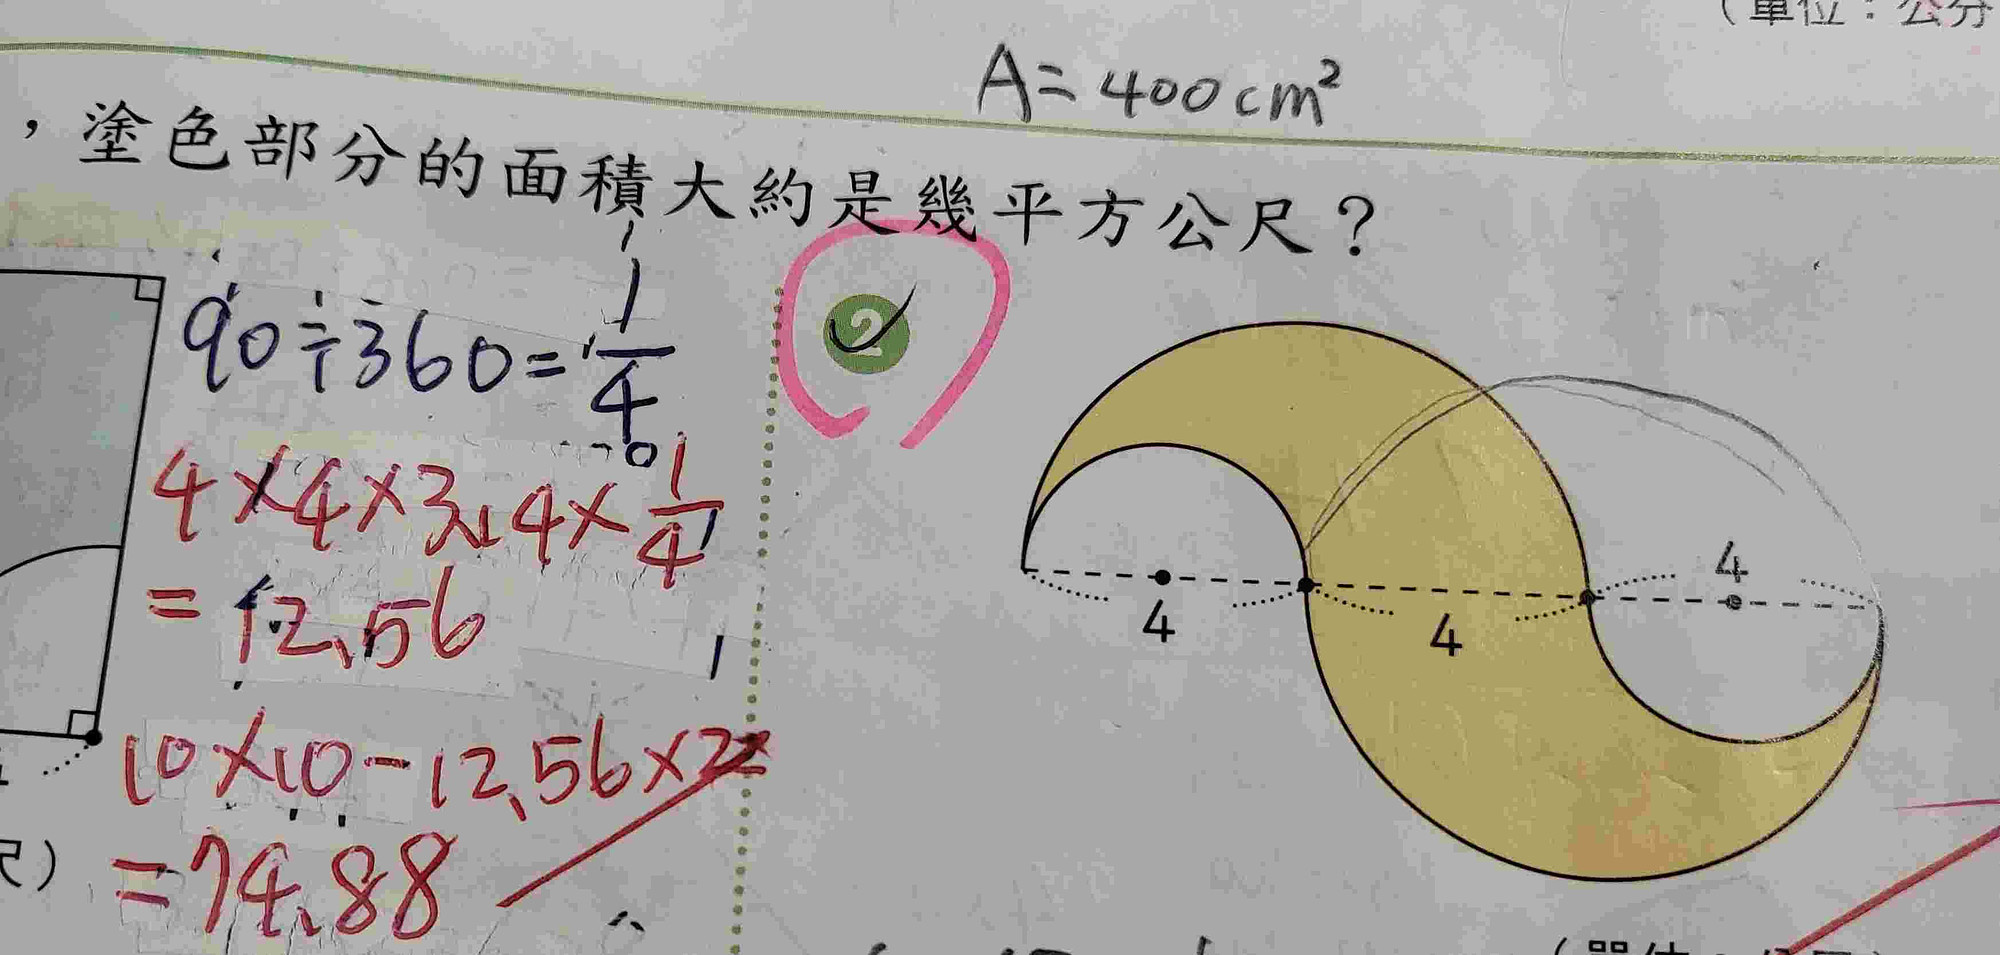 （單位：公分
A=400cm²
，塗色部分的面積大約是幾平方公尺？
90÷360=1/4
4×4×3.14×1/4
=12.56
10×10-12.56×2
=74.88
尺）
2
4
4
4